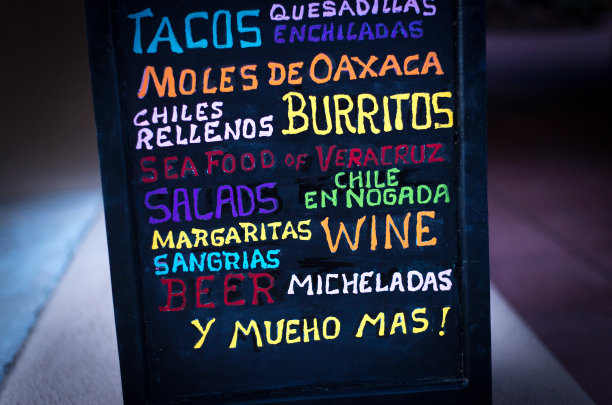 TACOS QUESADILLAS
ENCHILADAS
MOLES DE OAXACA
CHILES
RELLENOS BURRITOS
SEA FOOD OF VERACRUZ
SALADS CHILE
EN NOGADA
MARGARITAS WINE
SANGRIAS
BEER MICHELADAS
Y MUEHO MAS!